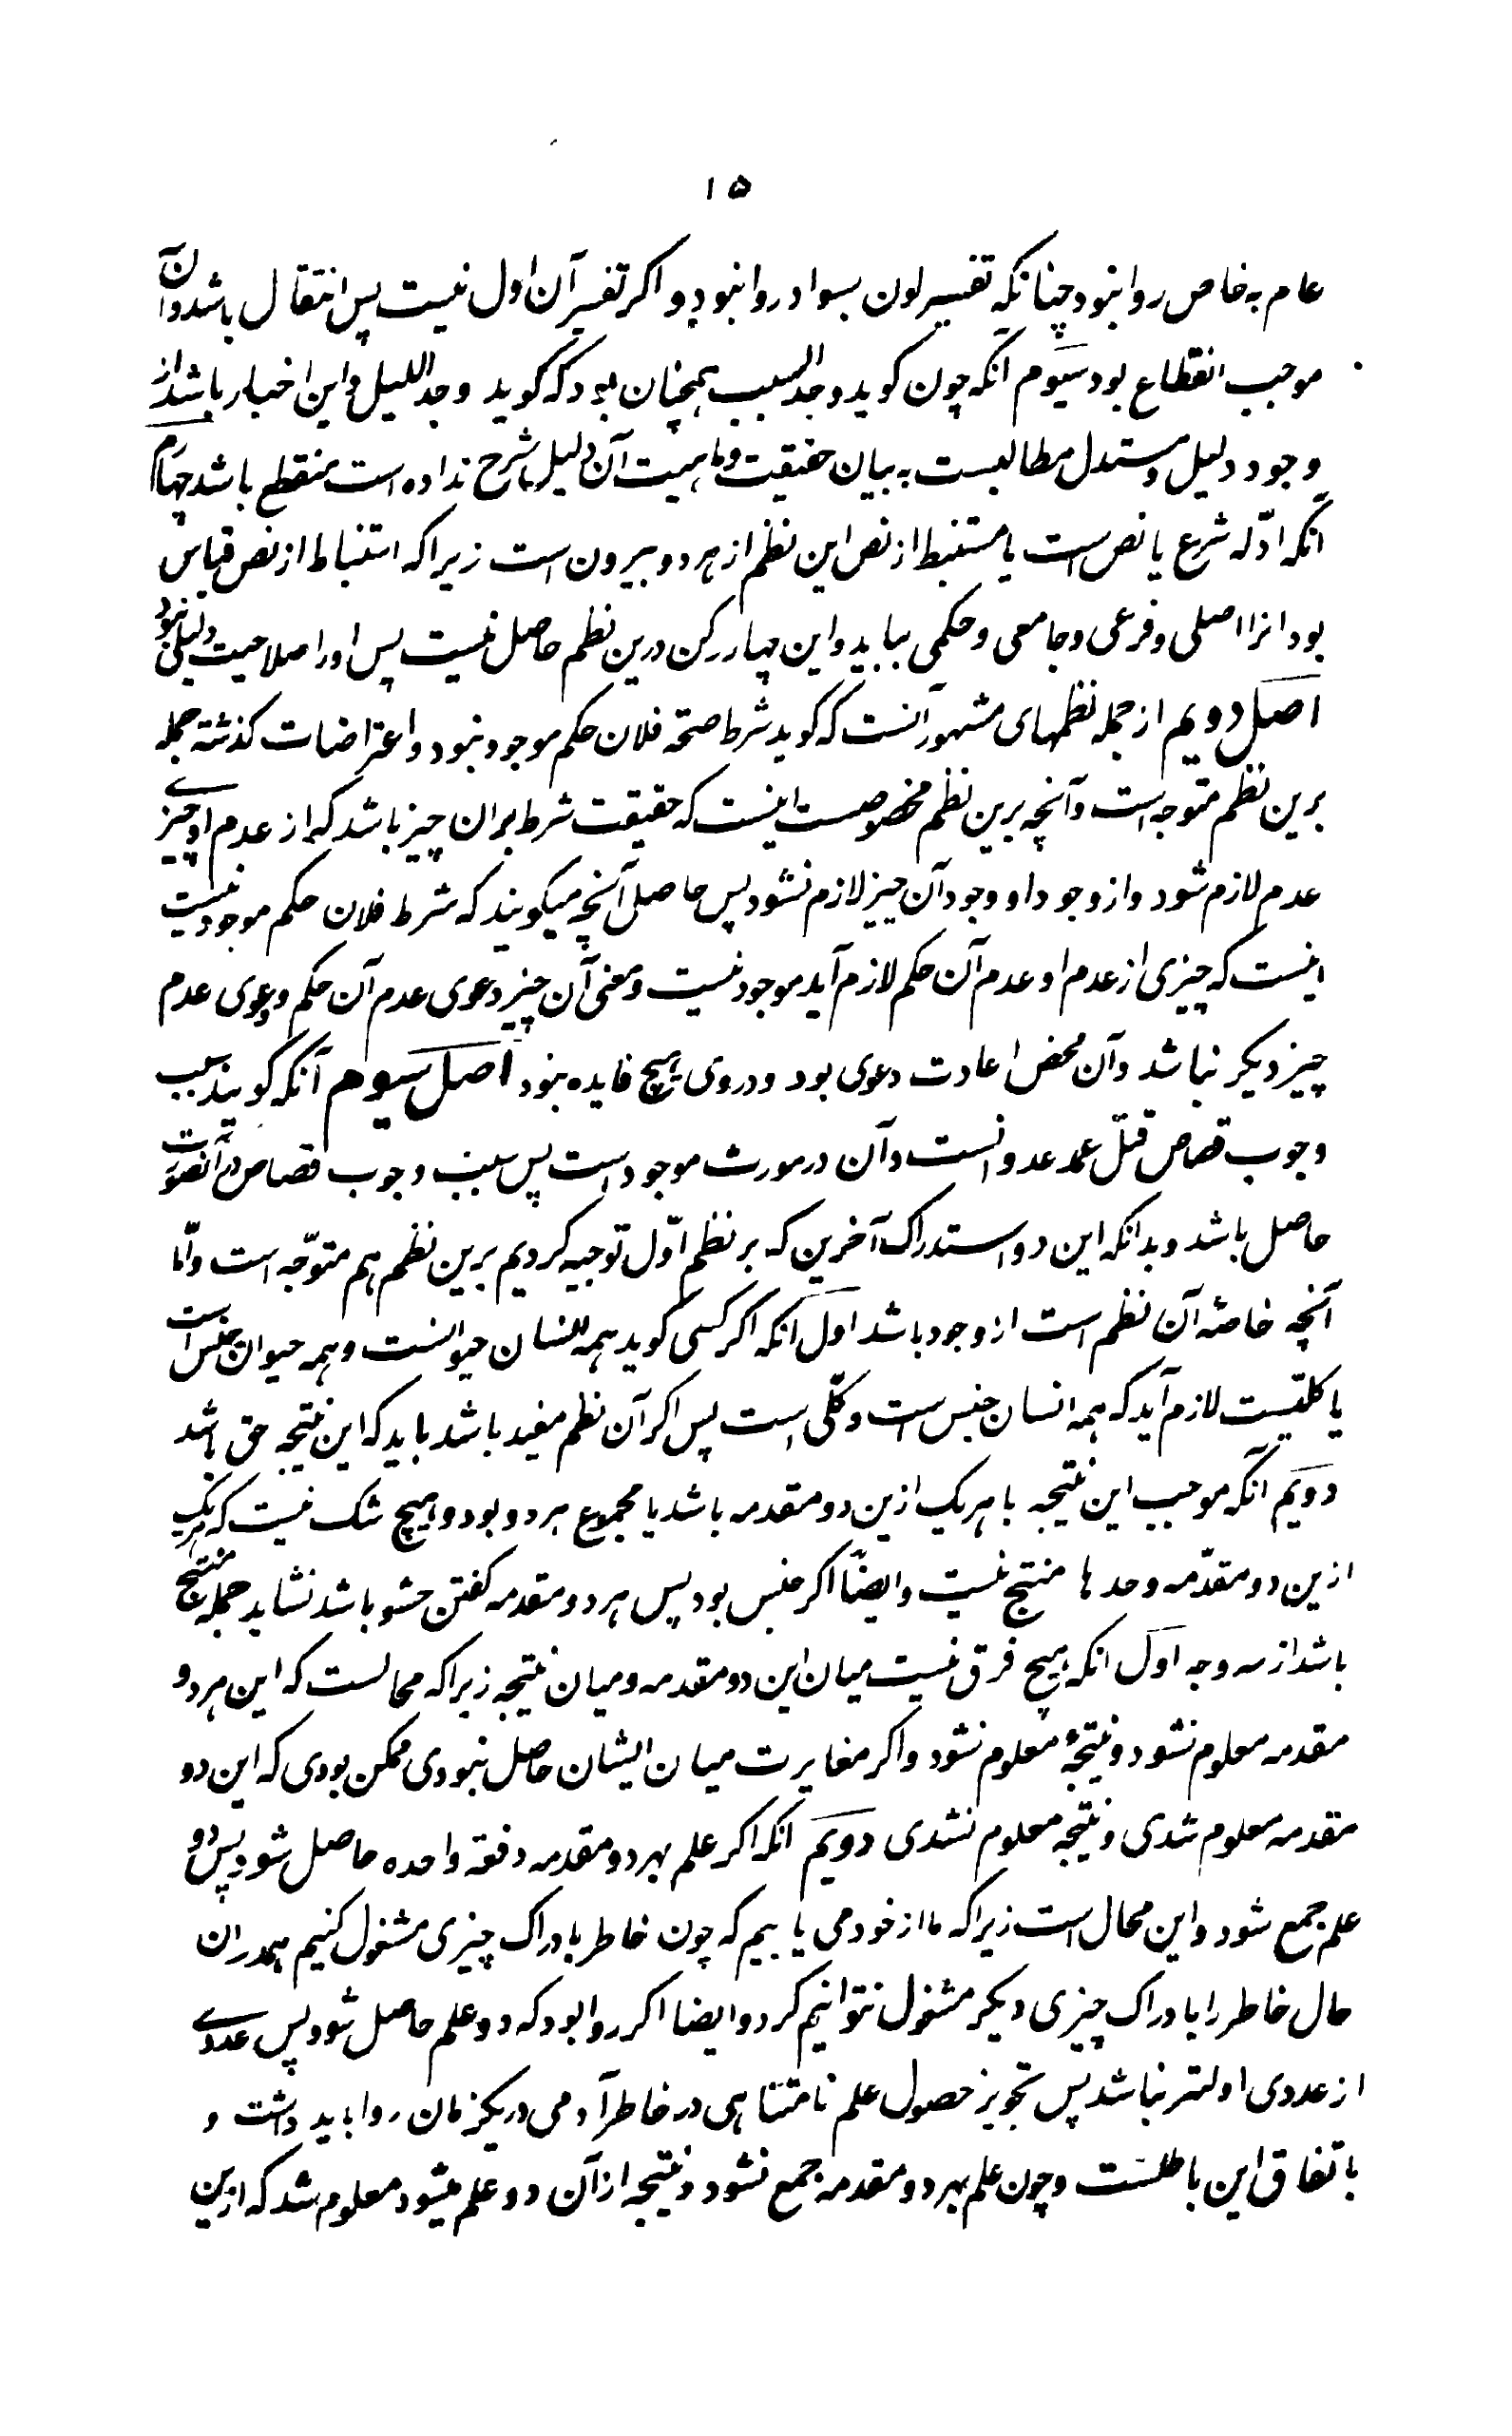 ۱۵
عام به خاص روا نبود چنانکه تفسیر لون بسواد روا نبود و اکر تفسیر آن اول نیست پس انتقال باشد و آن
موجب انقطاع بود سیوم آنکه چون کوید وجد السبب همچنان بود که کوید وجد اللیل و این اخبار باشد از
وجود دلیل و مستدل مطالبست به بیان حقیقت و ماهیت آن دلیل تا شرح نداده است منقطع باشد چهارم
آنکه ادّله شرع یا نص است یا مستنبط از نص این نظم از هر دو بیرون است زیرا که استنباط از نص قیاس
بود انرا اصلی و فرعی و جامعی و حکمی بباید و این چهار رکن درین نظم حاصل نیست پس او را صلاحیت دلیلی نبود
اصل دویم از جمله نظمهای مشهور آنست که کوید شرط صحة فلان حکم موجود نبود و اعتراضات کذشته جمله
برین نظم متوجه است و آنچه برین نظم مخصوصست اینست که حقیقت شرط بران چیز باشد که از عدم او چیزے
عدم لازم شود و از وجود او وجود آن چیز لازم نشود پس حاصل آنچه میکویند که شرط فلان حکم موجود نیست
اینست که چیزی از عدم او عدم آن حکم لازم آید موجود نیست و معنی آن چیز دعوی عدم آن حکم و دعوی عدم
چیز دیکر نباشد و آن محض اعادت دعوی بود و دروی هیچ فایده نبود اصل سیوم آنکه کویند سبب
وجوب قصاص قتل عمد عدوانست و آن در صورت موجود است پس سبب وجوب قصاص در آنصورت
حاصل باشد و بدانکه این دو استدراک آخرین که بر نظم اوّل توجیه کردیم برین نظم هم متوّجه است و امّا
آنچه خاصّه آن نظم است از وجود باشد اول آنکه اکر کسی کوید همه انسان حیوانست و همه حیوان جنس است
یا کلیّست لازم آید که همه انسان جنس است و کلّی است پس اکر آن نظم مفید باشد باید که این نتیجه حق باشد
دویم آنکه موجب این نتیجه یا هر یک ازین دو مقدمه باشد یا مجموع هر دو بود و هیچ شک نیست که هر یک
ازین دو مقدّمه وحدها منتج نیست و ایضاً اکر جنس بود پس هر دو مقدمه کفتن حشو باشد نشاید جمله منتج
باشد از سه وجه اول انکه هیچ فرق نیست میان این دو مقدمه و میان نتیجه زیرا که محالست که این هر دو
مقدمه معلوم نشود و نتیجهٔ معلوم نشود و اکر مغایرت میان ایشان حاصل نبودی ممکن بودی که این دو
مقدمه معلوم شدی و نتیجه معلوم نشدی دویم انکه اکر علم بهر دو مقدمه دفعة واحده حاصل شود پس دو
علم جمع شود و این محال است زیرا که ما از خود می یابیم که چون خاطر بادراک چیزی مشغول کنیم همدران
حال خاطر را بادراک چیزی دیکر مشغول نتوانیم کرد و ایضا اکر روا بود که دو علم حاصل شود پس عددے
از عددی اولتر نباشد پس تجویز حصول علم نامتناهی در خاطر آدمی در یکزمان روا باید داشت و
باتفاق این باطلست و چون علم بهر دو مقدمه جمع نشود و نتیجه از آن دو علم میشود معلوم شد که ازین